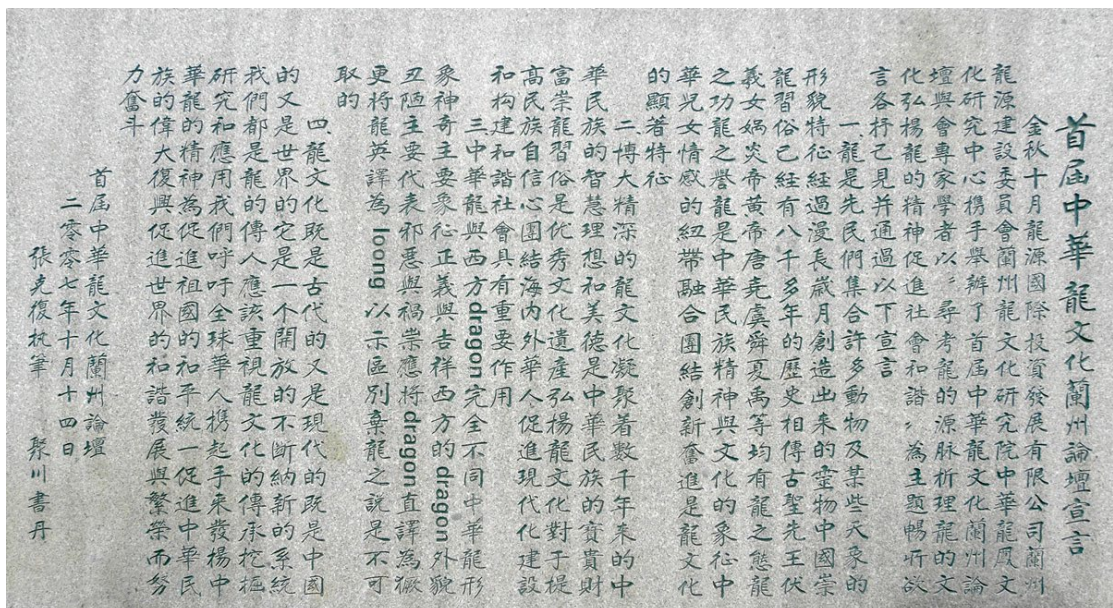 首屆中華龍文化蘭州論壇宣言
金秋十月龍源國際投資發展有限公司蘭州
龍源建設委員會蘭州龍文化研究院中華龍鳳文
化研究中心携手舉辦了首屆中華龍文化蘭州論
壇與會專家學者以〝尋考龍的源脉析理龍的文
化弘揚龍的精神促進社會和諧〞為主題暢所欲
言各抒己見并通過以下宣言
一、龍是先民們集合許多動物及某些天象的
形貌特征經過漫長歲月創造出來的靈物中國崇
龍習俗已經有八千多年的歷史相傳古聖先王伏
義女媧炎帝黃帝唐堯虞舜夏禹等均有龍之態龍
之功龍之譽龍是中華民族精神與文化的象征中
華兒女情感的紐帶融合團結創新奮進是龍文化
的顯著特征
二、博大精深的龍文化凝聚着數千年來的中
華民族的智慧理想和美德是中華民族的寶貴財
富崇龍習俗是优秀文化遺產弘揚龍文化對于提
高民族自信心團結海內外華人促進現代化建設
和构建和諧社會具有重要作用
三、中華龍與西方dragon完全不同中華龍形
象神奇主要象征正義與吉祥西方的dragon外貌
丑陋主要代表邪惡與禍祟應將dragon直譯為獗
更將龍英譯為loong以示區別棄龍之說是不可
取的
四、龍文化既是古代的又是現代的既是中國
的又是世界的它是一个開放的不斷納新的系統
我們都是龍的傳人應該重視龍文化的傳承挖掘
研究和應用我們呼吁全球華人携起手來發揚中
華龍的精神為促進祖國的和平統一促進中華民
族的偉大復興促進世界的和諧發展與繁榮而努
力奮斗
首屆中華龍文化蘭州論壇
二零零七年十月十四日
張克復執筆 聚川書丹